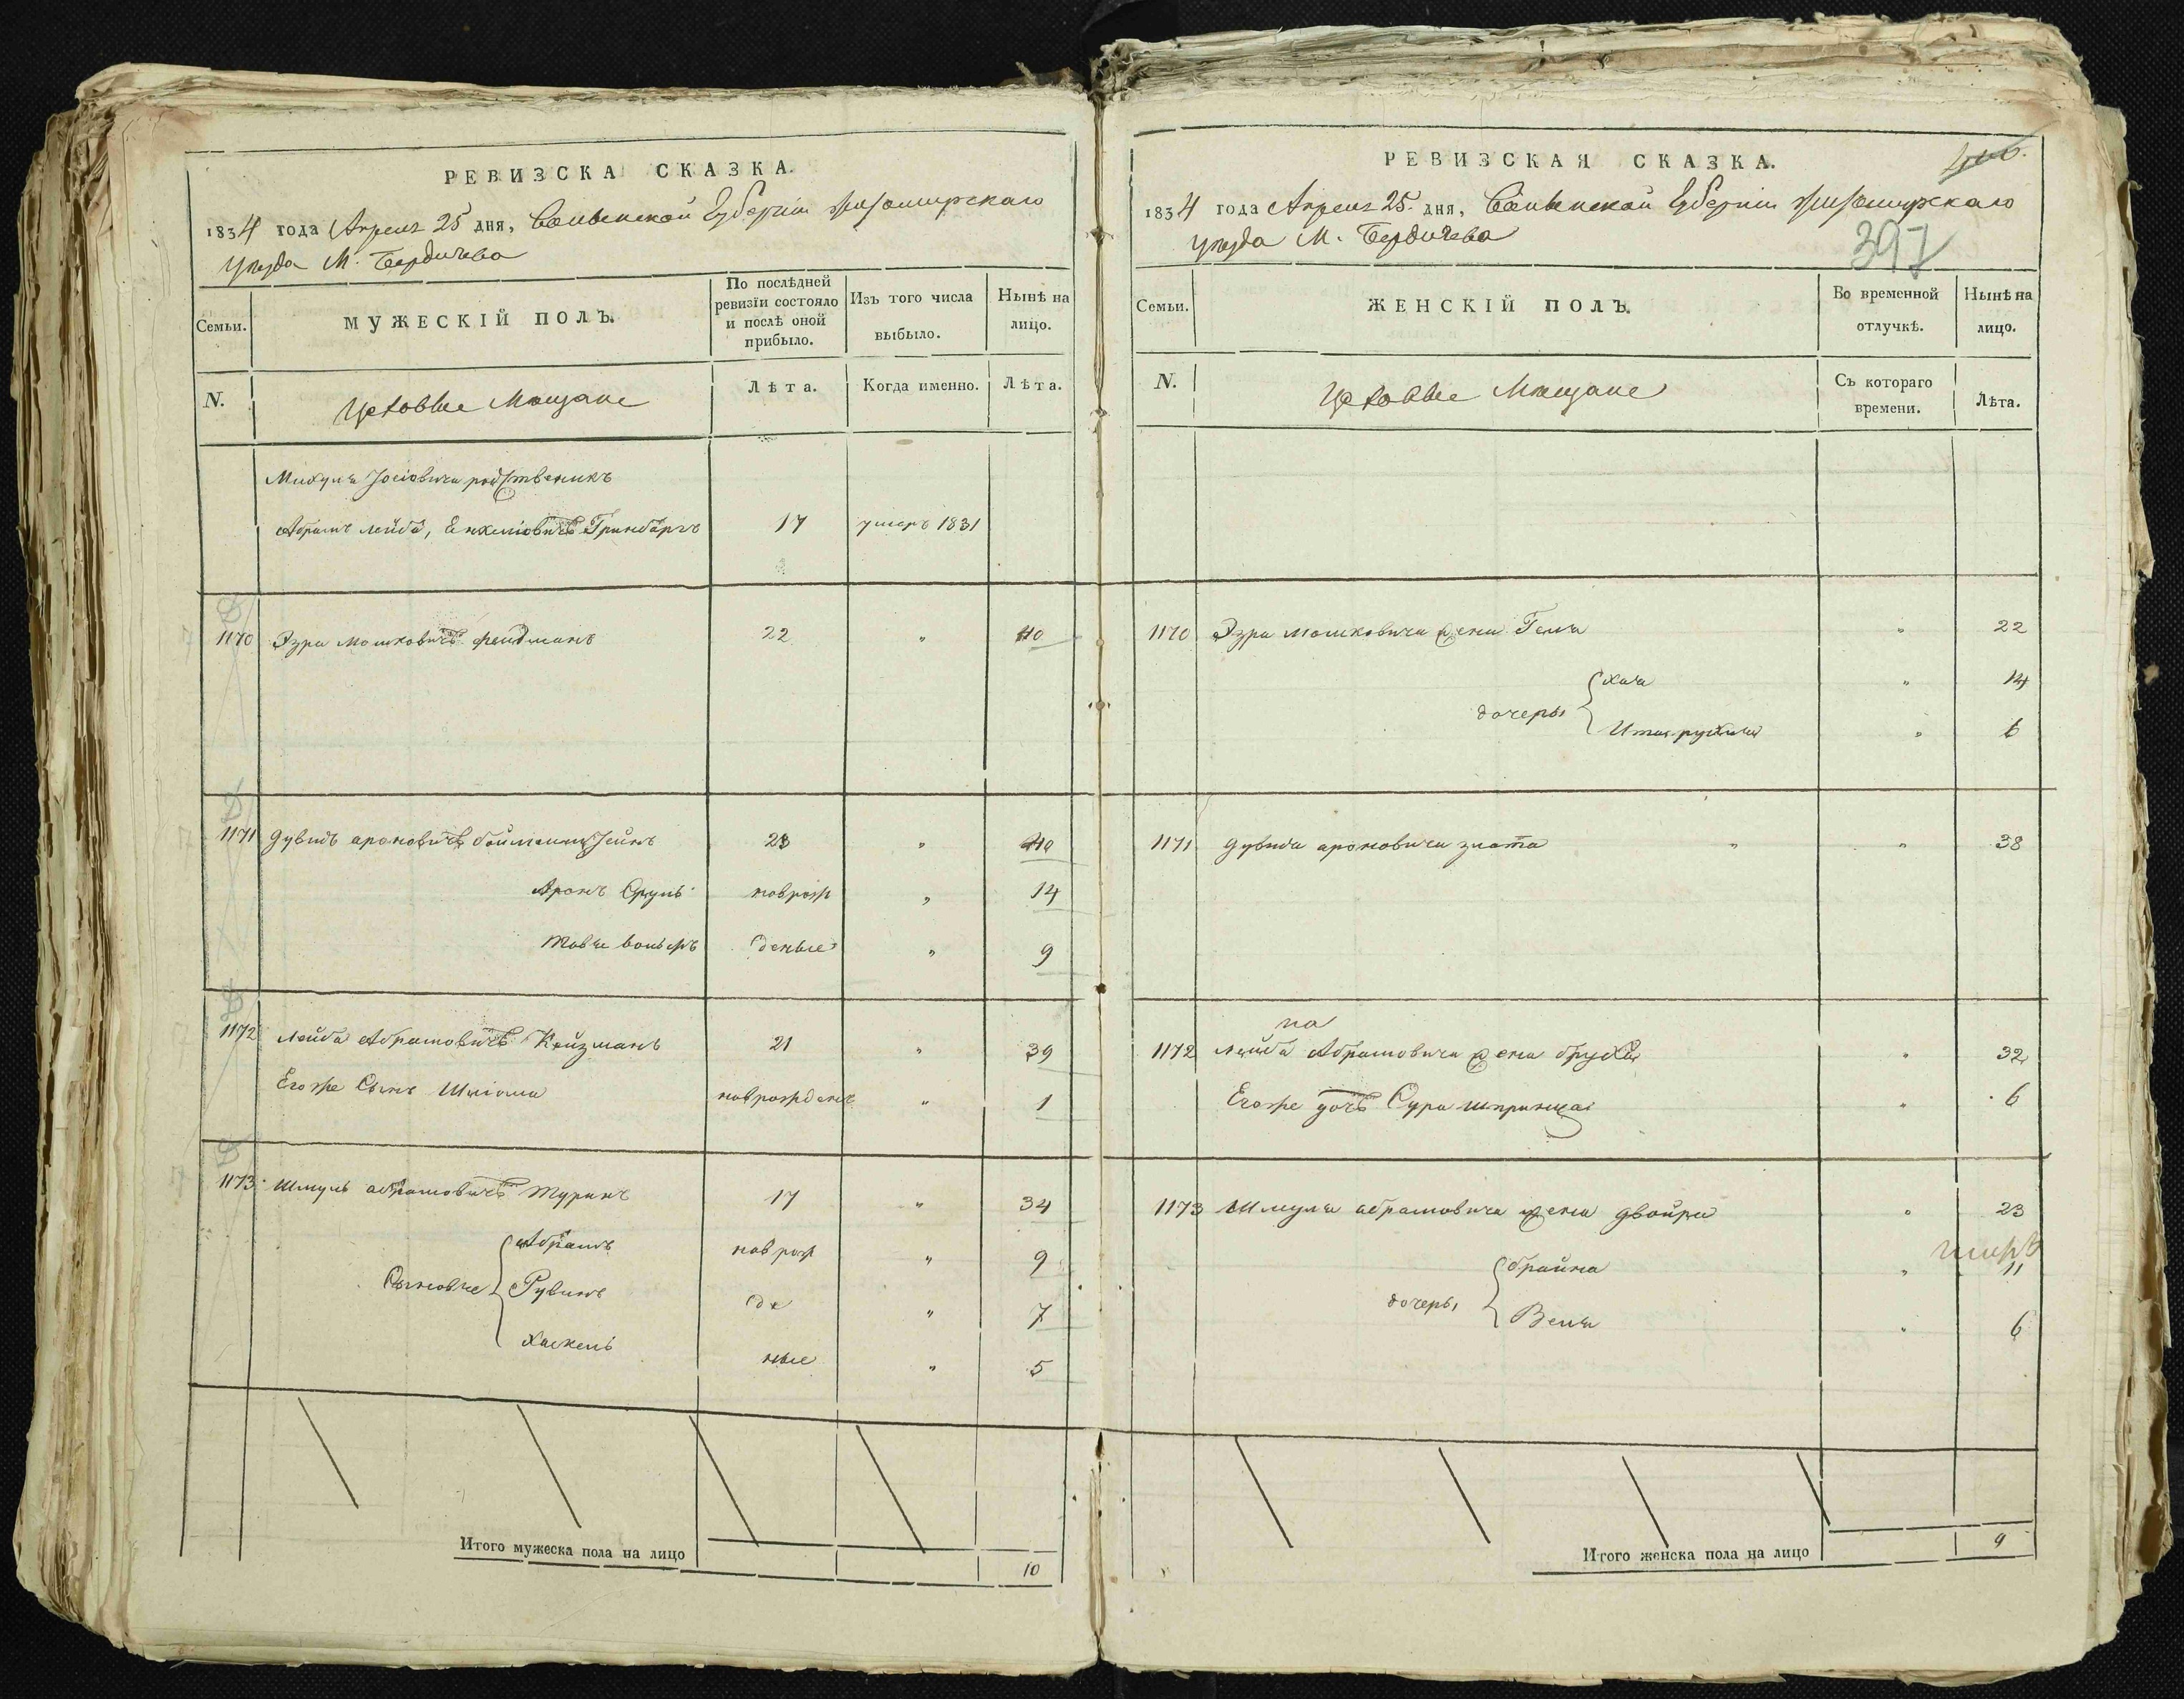 РЕВИЗСКА СКАЗКА.
1834 года Апреля 25 дня, Волынской Губерніи Житомирскаго
уезда М. Бердичева
Семьи.
МУЖЕСКІЙ ПОЛЪ.
По послѣдней
ревизіи состояло
и послѣ оной
прибыло.
Изъ того числа
выбыло.
Нынѣ на
лицо.
N.
Цеховые Мещане
Лѣта.
Когда именно.
Лѣта.
Михуля Іосіовича родственикъ
Абрамъ лейба, Гринбаргъ 17 умеръ 1831
1170 Эзра мошковичъ фелдманъ 22 " 40
1171 дувидъ ароновичъ 23 " 40
Аронъ Срулъ новрож " 14
Вольфъ деные " 9
1172 Лейба Абрамовичъ Койзманъ 21 " 39
Егоже Сынъ Шліома новрожденъ " 1
1173 Шмуль абрамовичъ Туринъ 17 " 34
Абрамъ новрож " 9
Сыновъе Рувинъ де " 7
Хаскель ные " 5
Итого мужеска пола на лицо
10
РЕВИЗСКАЯ СКАЗКА.
1834 года Апреля 25 дня, Волынской Губерніи Житомирскаго
уезда М. Бердичева
397
Семьи.
ЖЕНСКІЙ ПОЛЪ.
Во временной
отлучкѣ.
Нынѣ на
лицо.
N.
Цеховые Мещане
Съ котораго
времени.
Лѣта.
1170 Эзра мошковича жена Геля " 22
Хая " 14
дочеры
" 6
1171 дувида ароновича злота " " 38
на
1172 лейба Абрамовича жена бруха " 32
Егоже дочъ Сура шпринца " 6
1173 Шмуля абрамовича жена двойра " 23
брайна " 11
дочеры
Веля " 6
Итого женска пола на лицо
9